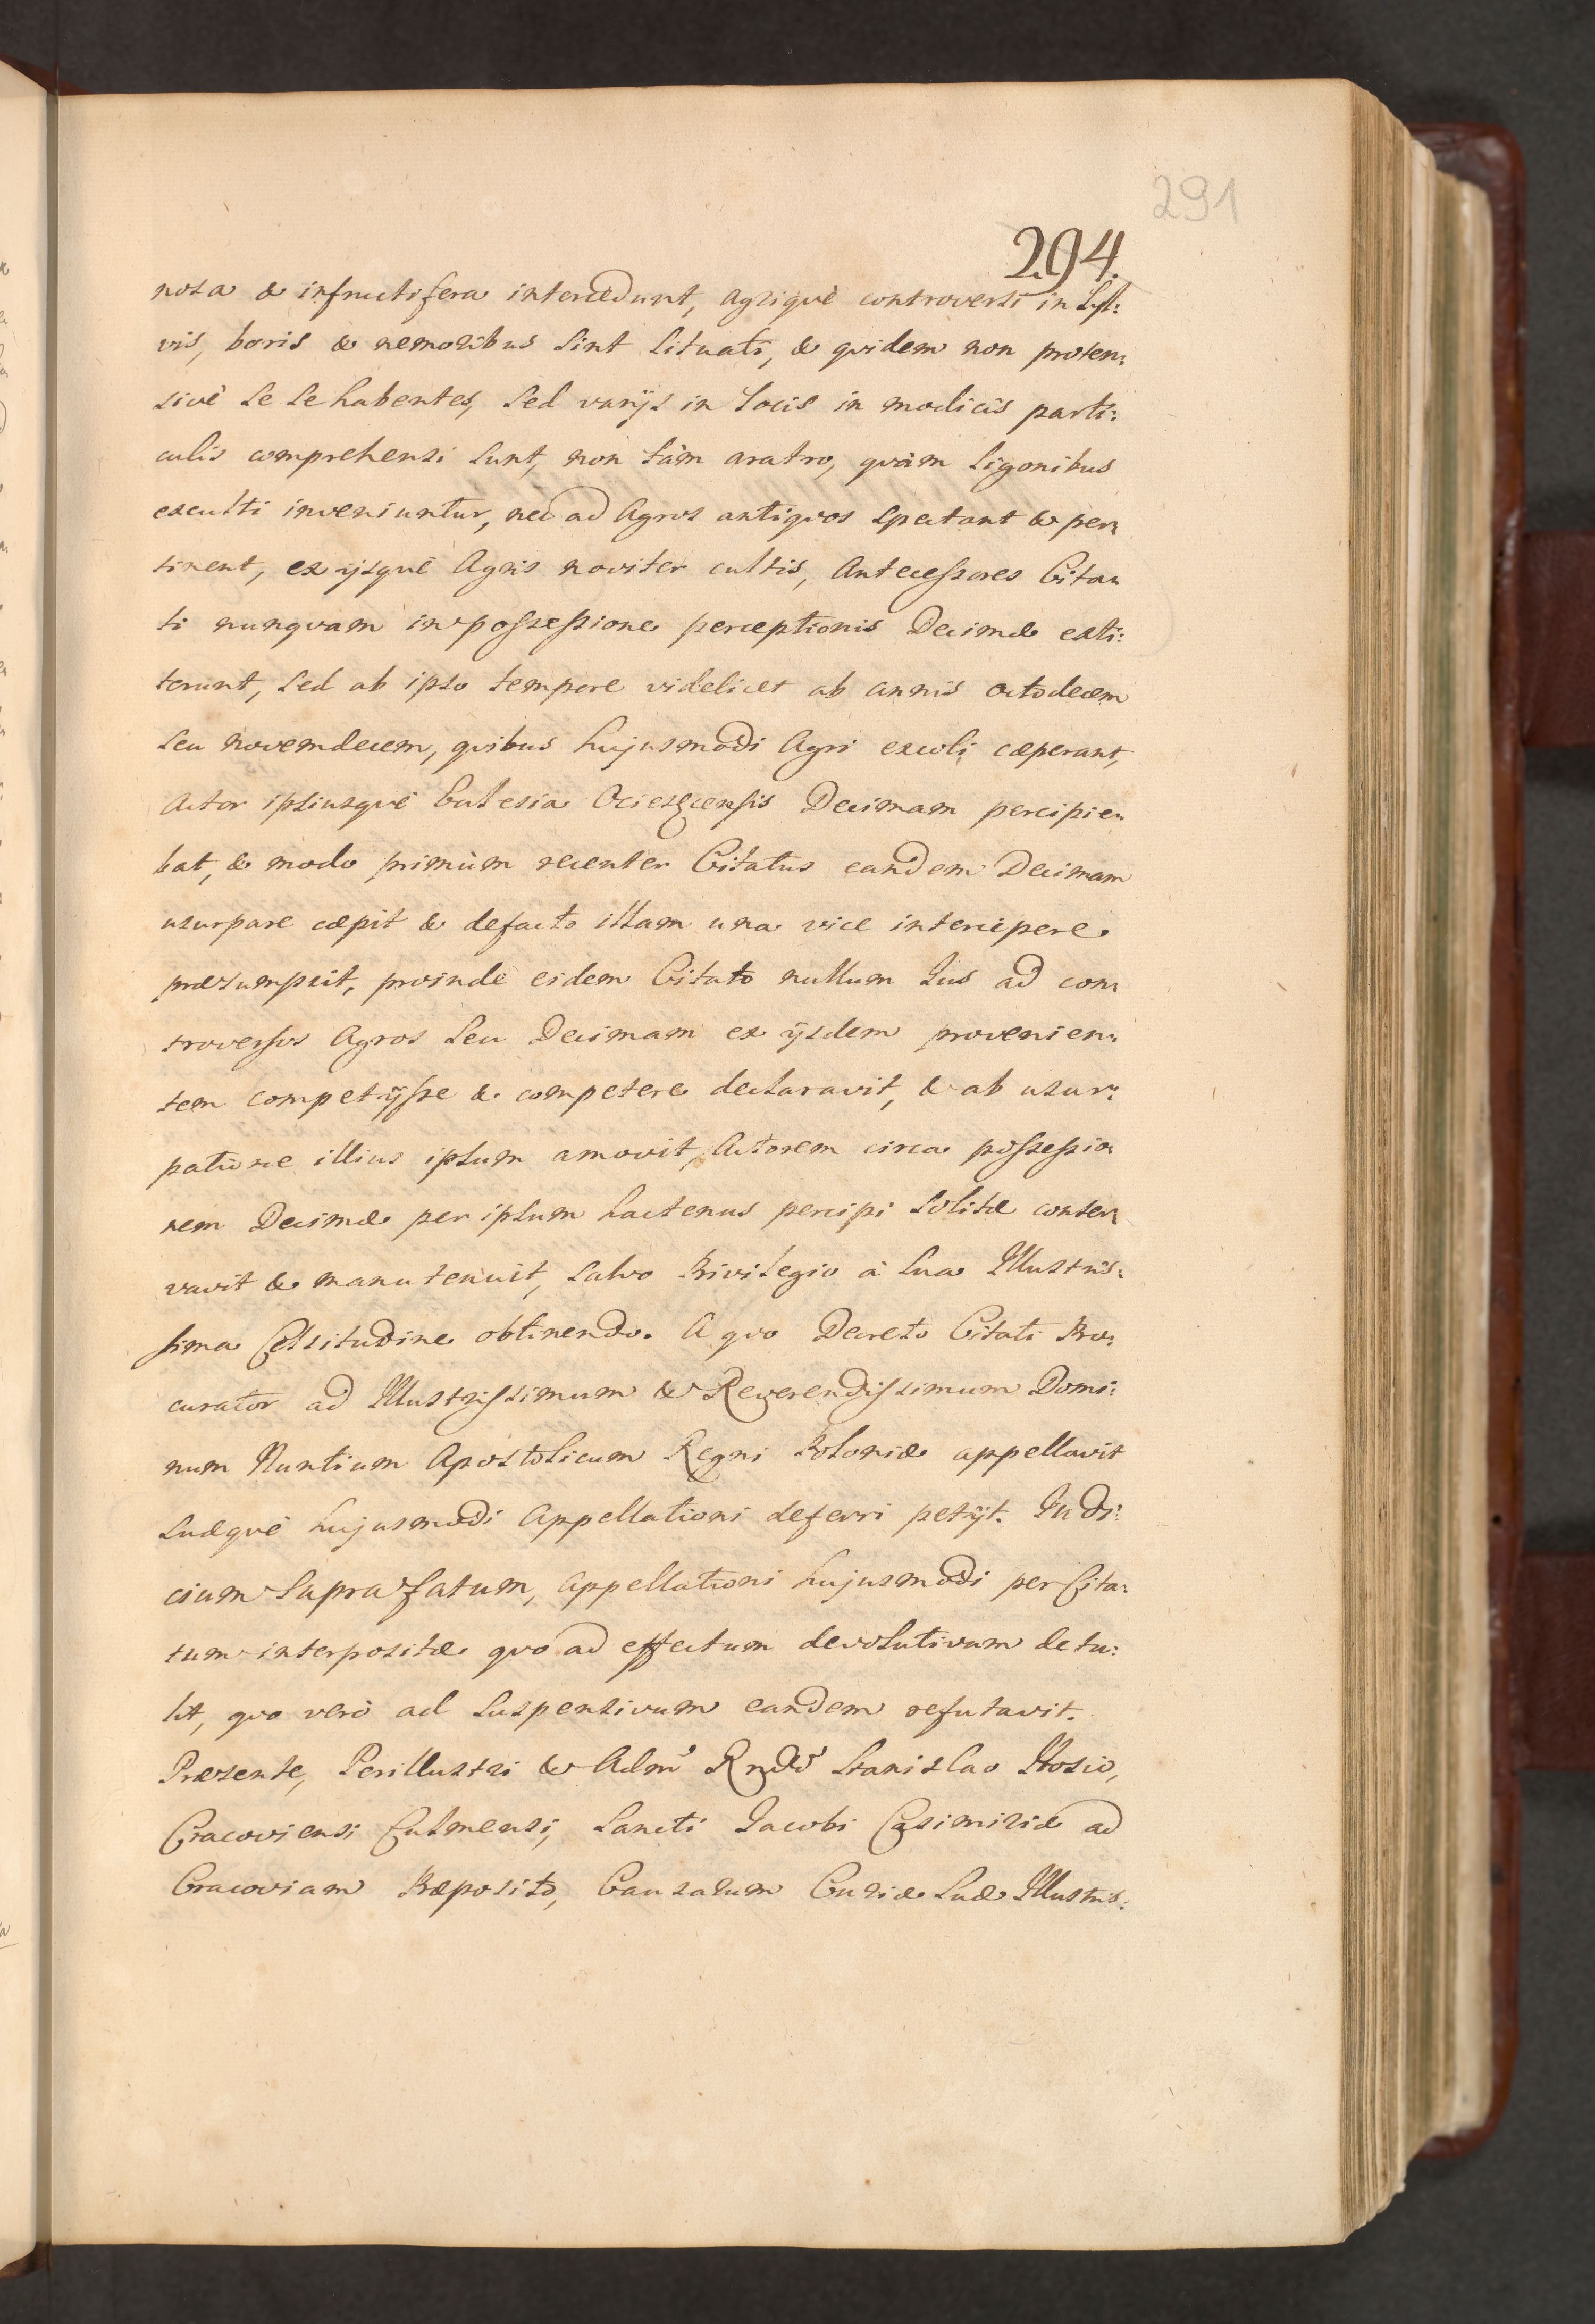 291
294.
nosa & infructifera intercedunt, agriquè controversi in Syl:
vis, boris & nemoribus sint situati, & quidem non proten:
sivè se se habentes, sed varijs in locis in modicis parti:
culis comprehensi sunt, non tàm aratro, quàm ligonibus
exculti inveniuntur, nec ad Agros antiquos spectant & per:
tinent, ex ijsquè Agris noviter cultis, Antecessores Cita:
ti nunquam in possessione perceptionis Decimæ exti:
terunt, sed ab ipso tempore videlicet ab annis octodecem
seu novemdecem, quibus hujusmodi Agri excoli cæperant,
Actor ipsiusquè Eclesia Ociesecensis Decimam percipie:
bat, & modo primùm recenter Citatus eandem Decimam
usurpare cæpit & defacto illam una vice intercipere
præsumpsit, proinde eidem Citato nullum Jus ad con:
troversos Agros seu Decimam ex ijsdem provenien:
tem competijsse & competere declaravit, & ab usur:
patione illius ipsum amovit, Actorem circa possessio:
nem Decimæ per ipsum hactenus percipi solitæ conser:
vavit & manutenuit, salvo Privilegio à sua Illustris:
sima Celsitudine obtinendo. A quo Decreto Citati Pro:
curator ad Illustrissimum & Reverendissimum Domi:
num Nuntium Apostolicum Regni Poloniæ appellavit
suæquè hujusmodi Appellationi deferri petijt. Judi:
cium suprafatum, appellationi hujusmodi per Cita:
tum interpositæ quo ad effectum devolutivum detu:
lit, quo verò ad suspensivum eandem refutavit.
Præsente, Perillustri & Adm Rndo Stanislao Hosio,
Cracoviensi Culmensi, Sancti Jacobi Casimiriæ ad
Cracoviam Præposito, Causarum Curiæ suæ Illustris: